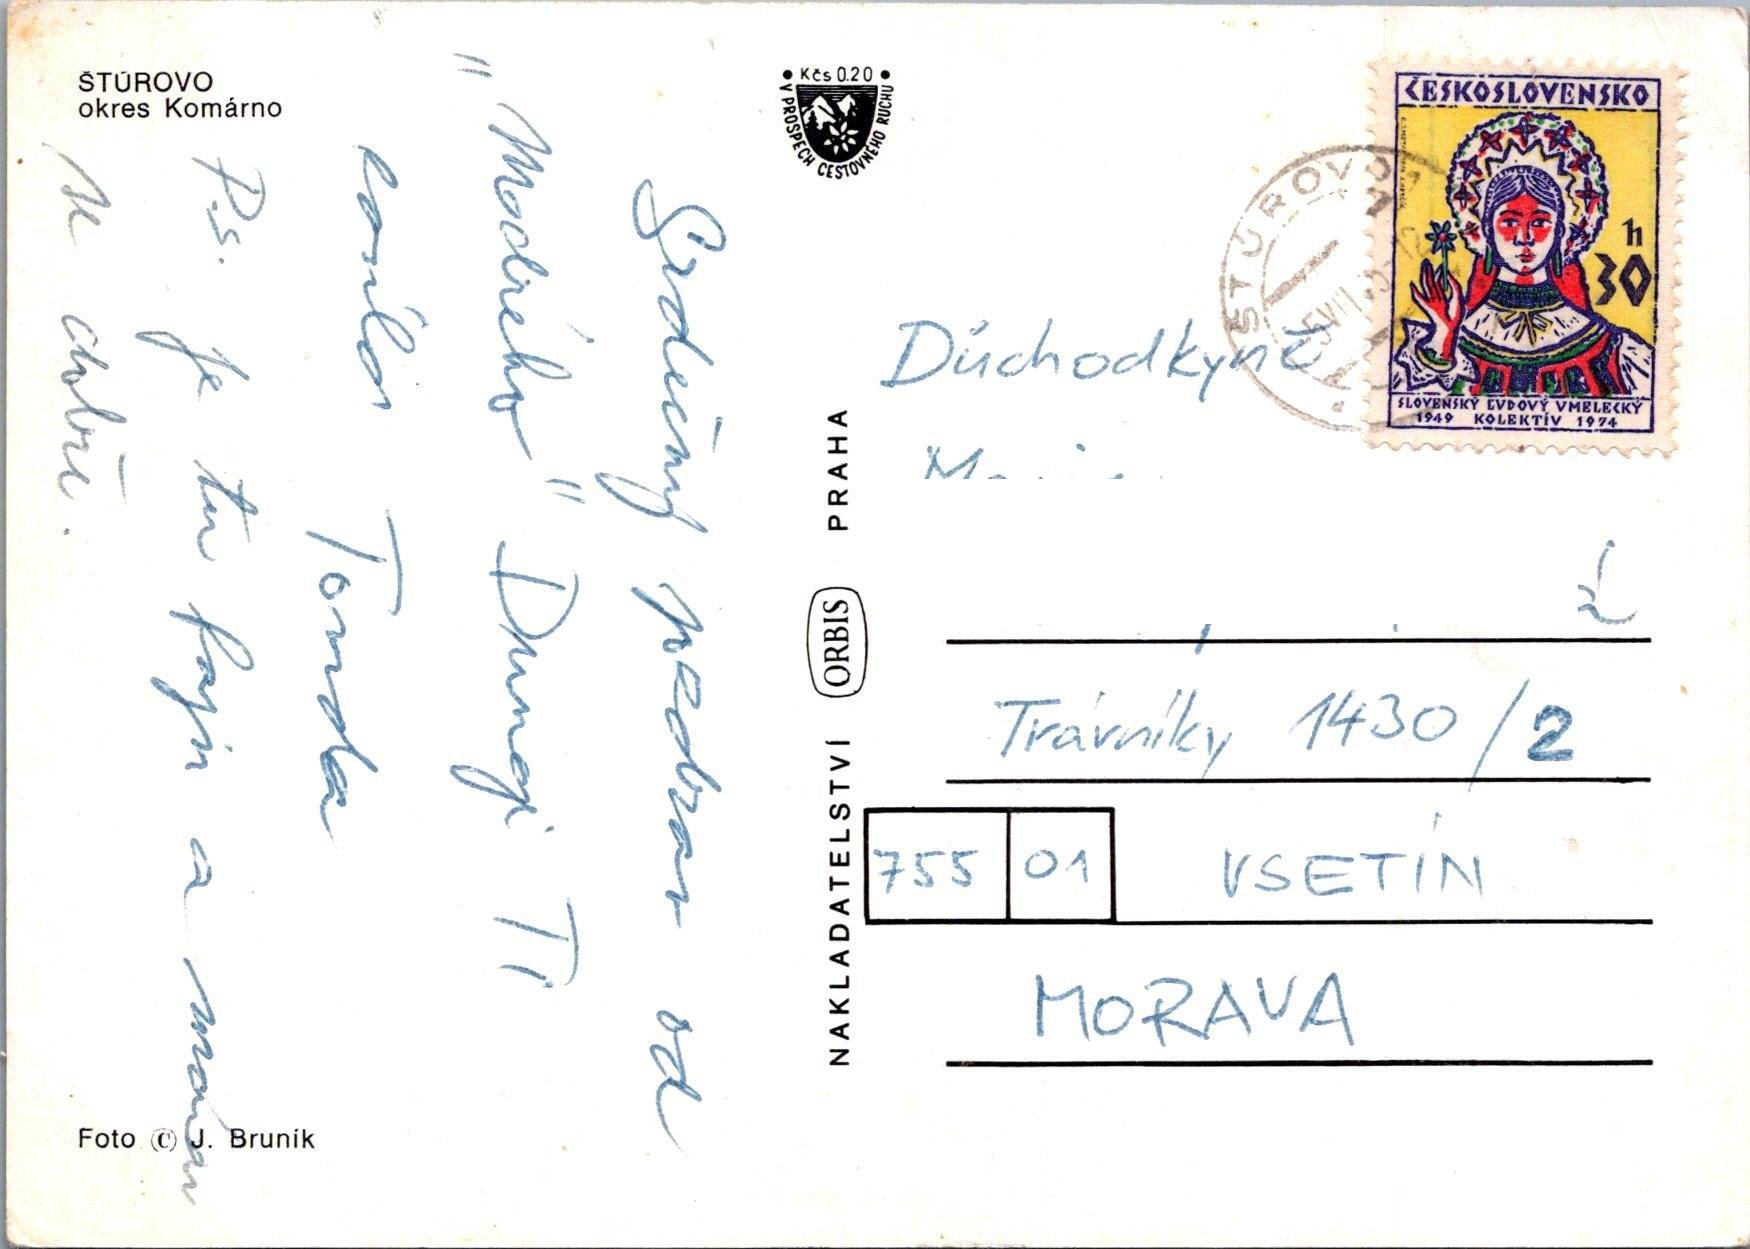 ŠTÚROVO
okres Komárno
Kčs 0.20
V PROSPECH CESTOVNÉHO RUCHU
ČESKOSLOVENSKO
h
30
SLOVENSKÝ ĽUDOVÝ UMELECKÝ
1949 KOLEKTÍV 1974
ŠTÚROVO 1
Srdečný pozdrav od
"Modrého" Dunaje Ti
zasílá Tonda
P.s. je tu fajn a mám
se dobře.
NAKLADATELSTVÍ ORBIS PRAHA
Důchodkyně
Trávníky 1430/2
755 01 VSETÍN
MORAVA
Foto © J. Bruník